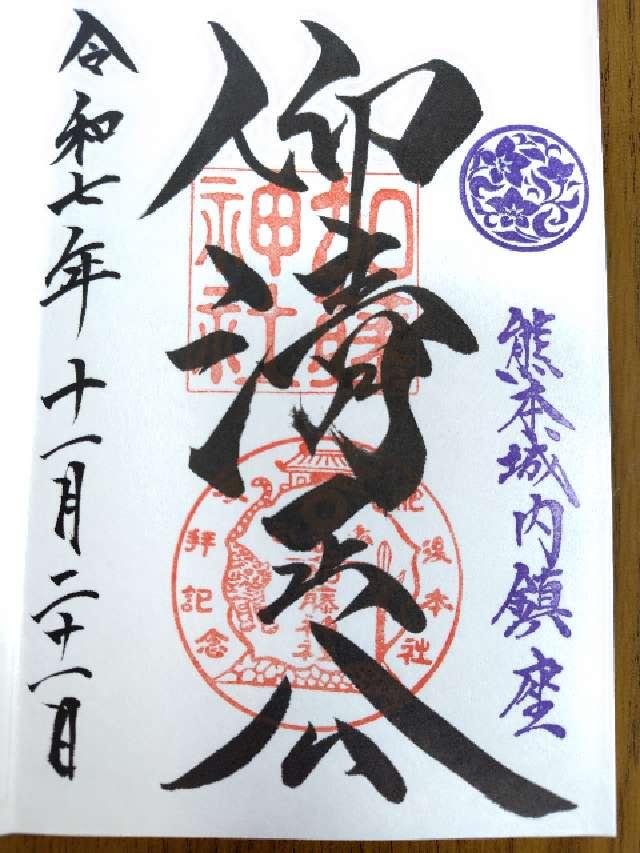 熊本城内鎮座
仰清正公
加藤神社
肥後本社
拝記念
藤神社
令和七年十一月二十一日